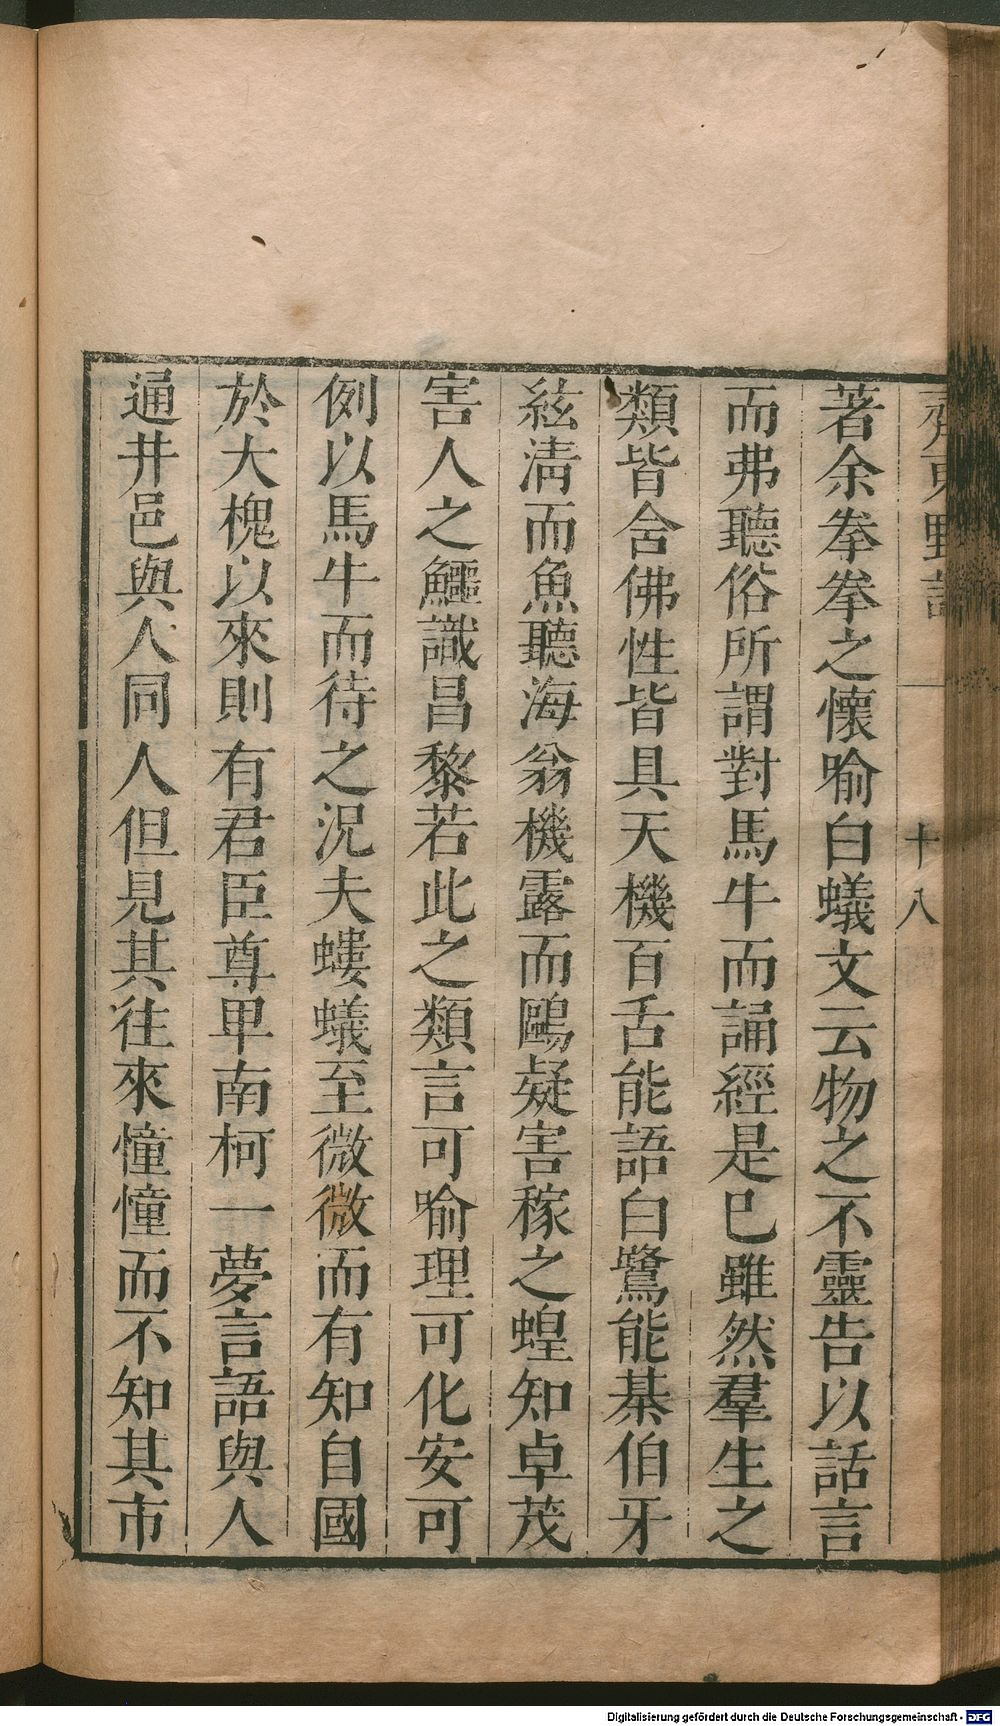 齊東野語
十八
著余拳拳之懷喻白蟻文云物之不靈告以話言
而弗聽俗所謂對馬牛而誦經是已雖然羣生之
類皆含佛性皆具天機百舌能語白鷺能棊伯牙
絃清而魚聽海翁機露而鷗疑害稼之蝗知卓茂
害人之鱷識昌黎若此之類言可喻理可化安可
例以馬牛而待之況夫螻蟻至微微而有知自國
於大槐以來則有君臣尊卑南柯一夢言語與人
通井邑與人同人但見其往來憧憧而不知其市
Digitalisierung gefördert durch die Deutsche Forschungsgemeinschaft - DFG